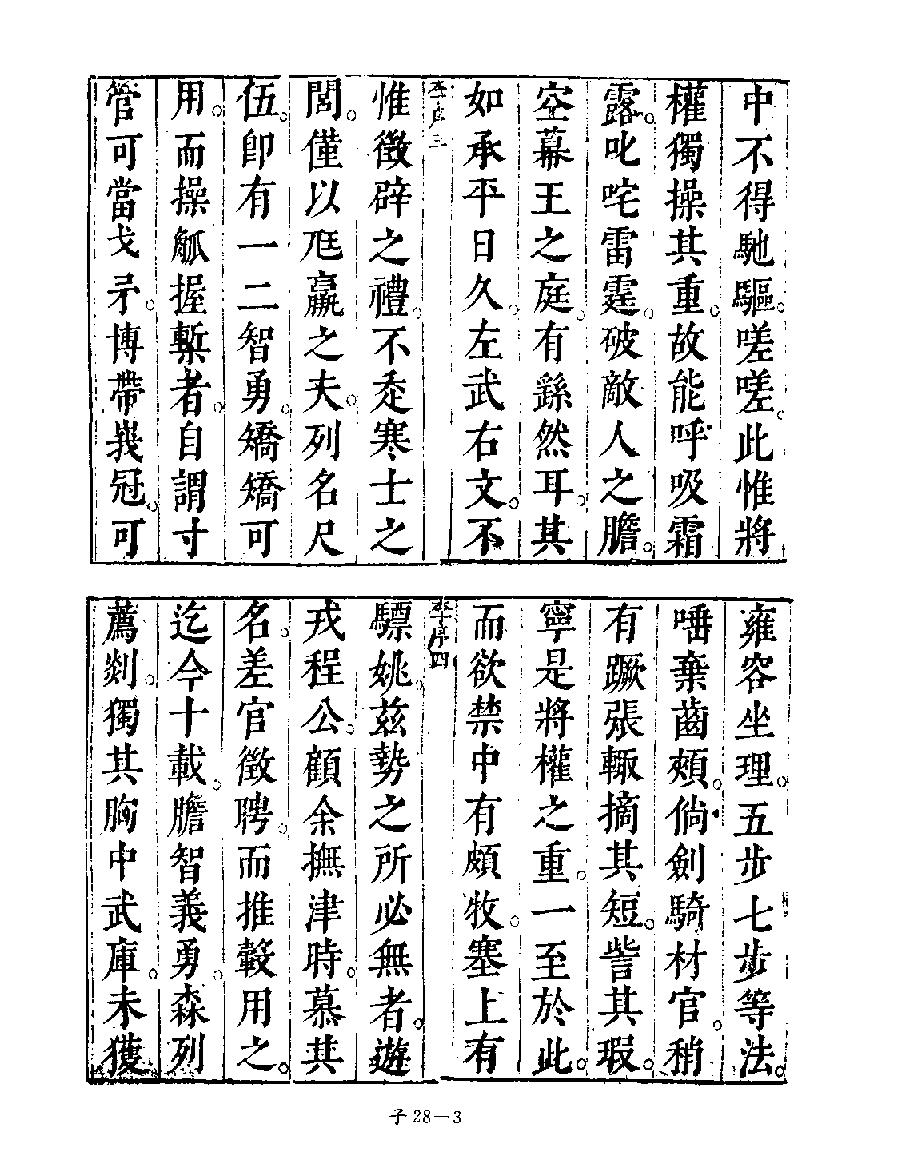 中不得馳驅。嗟嗟。此惟將
權獨操其重。故能呼吸霜
露。叱咤雷霆。破敵人之膽。
空幕王之庭。有繇然耳。其
如承平日久。左武右文。不
李序 三
惟徵辟之禮。不及寒士之
閭。僅以尫羸之夫。列名尺
伍。卽有一二智勇。矯矯可
用。而操觚握槧者。自謂寸
管可當戈矛。博帶峩冠。可
雍容坐理。五步七步等法。
唾棄齒頰。倘劍騎材官。稍
有蹶張輙摘其短。訾其瑕。
寧是將權之重。一至於此。
而欲禁中有頗牧。塞上有
李序 四
驃姚。茲勢之所必無者。遊
戎程公。顧余撫津時。慕其
名。差官徵聘。而推轂用之。
迄今十載。膽智義勇。森列
薦剡。獨其胸中武庫。未獲
子 28－3